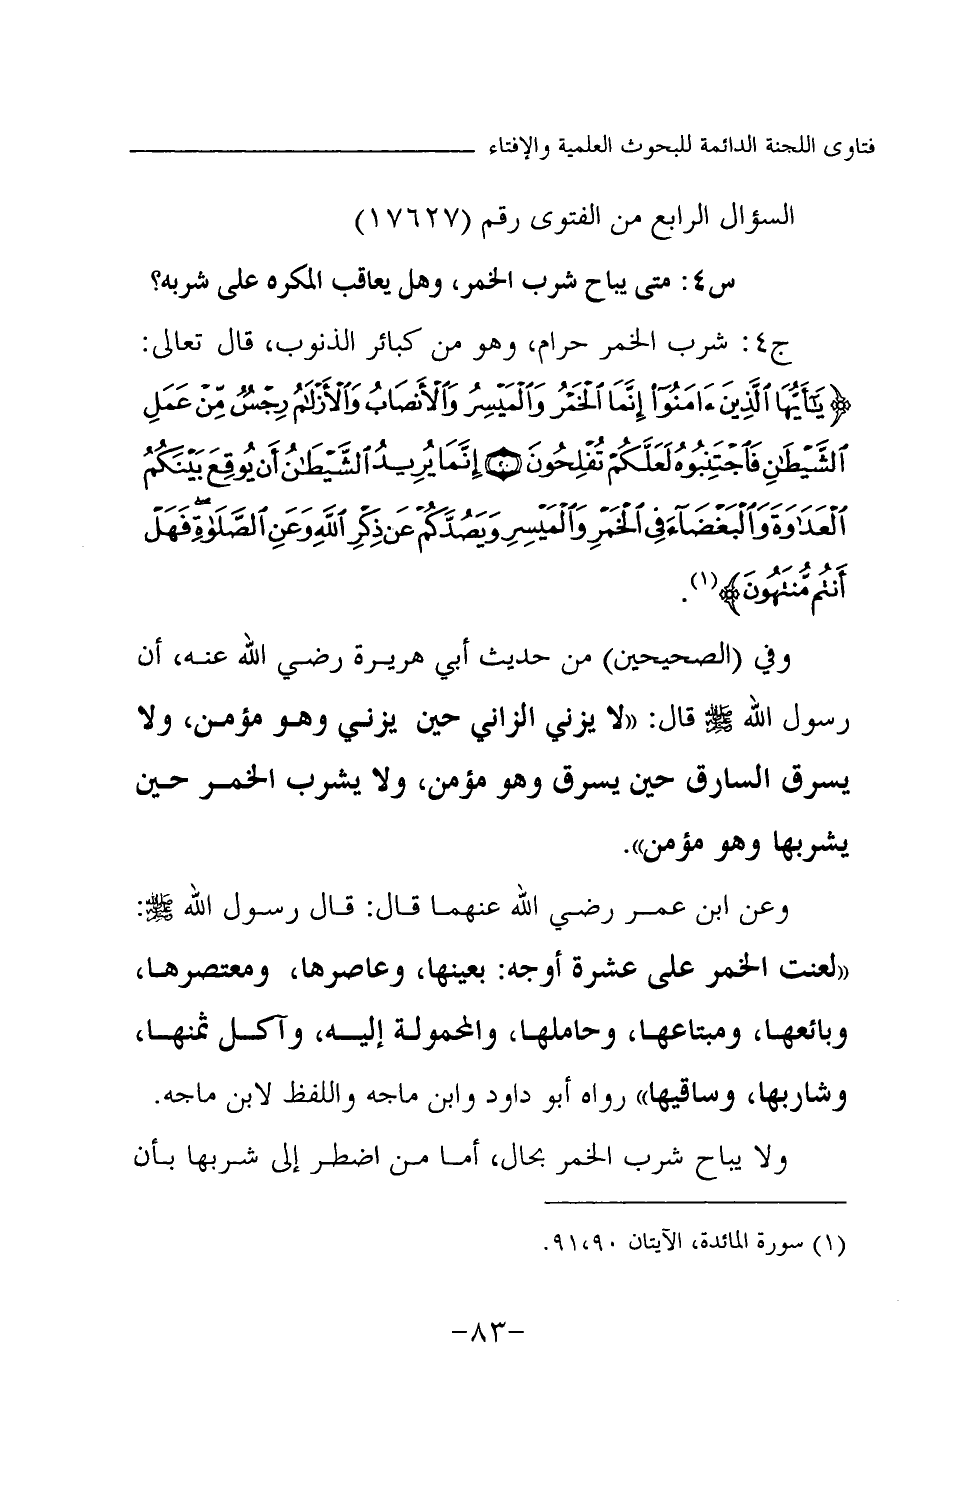 فتاوى اللجنة الدائمة للبحوث العلمية والإفتاء
السؤال الرابع من الفتوى رقم (١٧٦٢٧)
س٤: متى يباح شرب الخمر، وهل يعاقب المكره على شربه؟
ج٤: شرب الخمر حرام، وهو من كبائر الذنوب، قال تعالى:
﴿يَٰٓأَيُّهَا ٱلَّذِينَ ءَامَنُوٓا۟ إِنَّمَا ٱلْخَمْرُ وَٱلْمَيْسِرُ وَٱلْأَنصَابُ وَٱلْأَزْلَٰمُ رِجْسٌ مِّنْ عَمَلِ
ٱلشَّيْطَٰنِ فَٱجْتَنِبُوهُ لَعَلَّكُمْ تُفْلِحُونَ ۝٩٠ إِنَّمَا يُرِيدُ ٱلشَّيْطَٰنُ أَن يُوقِعَ بَيْنَكُمُ
ٱلْعَدَٰوَةَ وَٱلْبَغْضَآءَ فِى ٱلْخَمْرِ وَٱلْمَيْسِرِ وَيَصُدَّكُمْ عَن ذِكْرِ ٱللَّهِ وَعَنِ ٱلصَّلَوٰةِ ۖ فَهَلْ
أَنتُم مُّنتَهُونَ﴾(١).
وفي (الصحيحين) من حديث أبي هريرة رضي الله عنه، أن
رسول الله ﷺ قال: «لا يزني الزاني حين يزني وهو مؤمن، ولا
يسرق السارق حين يسرق وهو مؤمن، ولا يشرب الخمر حين
يشربها وهو مؤمن».
وعن ابن عمر رضي الله عنهما قال: قال رسول الله ﷺ:
«لعنت الخمر على عشرة أوجه: بعينها، وعاصرها، ومعتصرها،
وبائعها، ومبتاعها، وحاملها، والمحمولة إليه، وآكل ثمنها،
وشاربها، وساقيها» رواه أبو داود وابن ماجه واللفظ لابن ماجه.
ولا يباح شرب الخمر بحال، أما من اضطر إلى شربها بأن
(١) سورة المائدة، الآيتان ٩٠،٩١.
-٨٣-